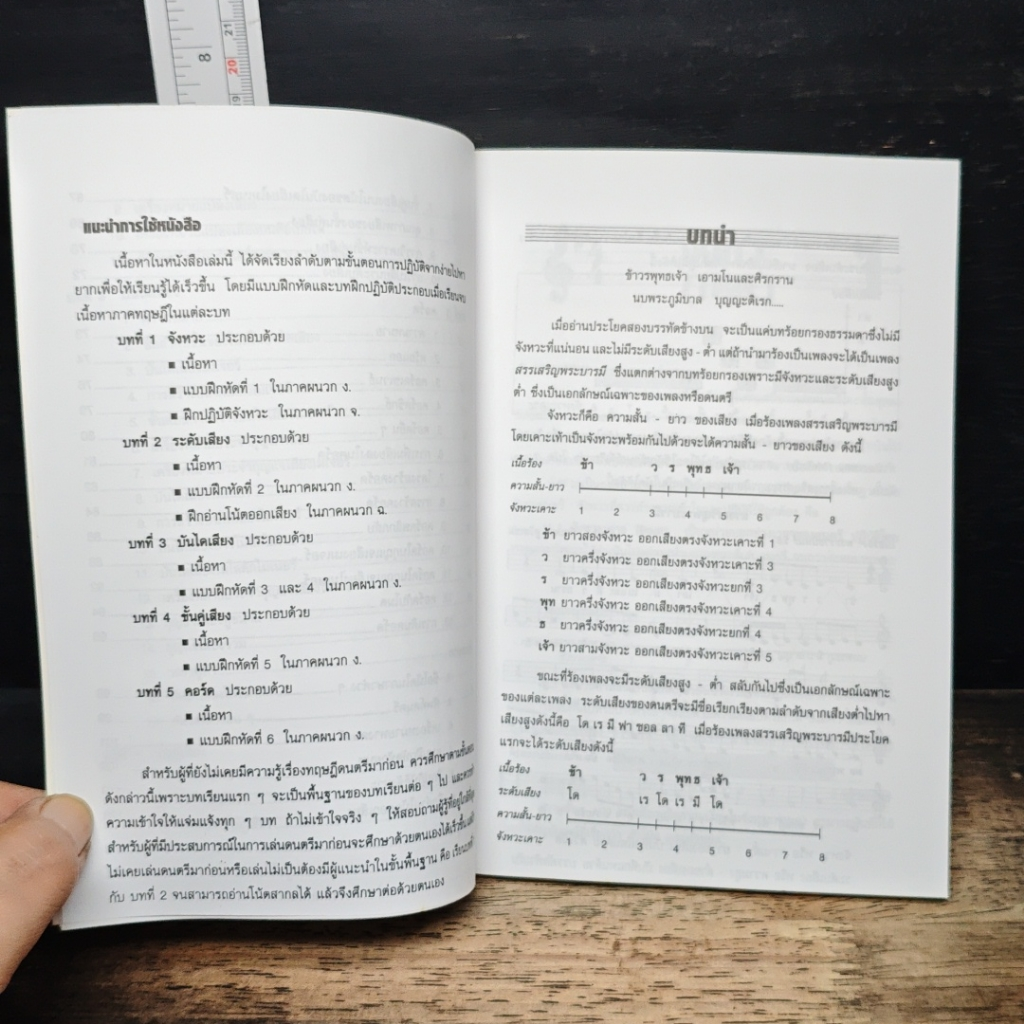 8
21
20
19
แนะนำการใช้หนังสือ
เนื้อหาในหนังสือเล่มนี้ ได้จัดเรียงลำดับตามขั้นตอนการปฏิบัติจากง่ายไปหา
ยากเพื่อให้เรียนรู้ได้เร็วขึ้น โดยมีแบบฝึกหัดและบทฝึกปฏิบัติประกอบเมื่อเรียนจบ
เนื้อหาภาคทฤษฎีในแต่ละบท
บทที่ 1 จังหวะ ประกอบด้วย
■ เนื้อหา
■ แบบฝึกหัดที่ 1 ในภาคผนวก ง.
■ ฝึกปฏิบัติจังหวะ ในภาคผนวก จ.
บทที่ 2 ระดับเสียง ประกอบด้วย
■ เนื้อหา
■ แบบฝึกหัดที่ 2 ในภาคผนวก ง.
■ ฝึกอ่านโน้ตออกเสียง ในภาคผนวก ฉ.
บทที่ 3 บันไดเสียง ประกอบด้วย
■ เนื้อหา
■ แบบฝึกหัดที่ 3 และ 4 ในภาคผนวก ง.
บทที่ 4 ขั้นคู่เสียง ประกอบด้วย
■ เนื้อหา
■ แบบฝึกหัดที่ 5 ในภาคผนวก ง.
บทที่ 5 คอร์ด ประกอบด้วย
■ เนื้อหา
■ แบบฝึกหัดที่ 6 ในภาคผนวก ง.
สำหรับผู้ที่ยังไม่เคยมีความรู้เรื่องทฤษฎีดนตรีมาก่อน ควรศึกษาตามขั้นตอน
ดังกล่าวนี้เพราะบทเรียนแรก ๆ จะเป็นพื้นฐานของบทเรียนต่อ ๆ ไป และควรทำ
ความเข้าใจให้แจ่มแจ้งทุก ๆ บท ถ้าไม่เข้าใจจริง ๆ ให้สอบถามผู้รู้ที่อยู่ใกล้
สำหรับผู้ที่มีประสบการณ์ในการเล่นดนตรีมาก่อนจะศึกษาด้วยตนเองได้เร็วขึ้น
ไม่เคยเล่นดนตรีมาก่อนหรือเล่นไม่เป็นต้องมีผู้แนะนำในขั้นพื้นฐาน คือ
กับ บทที่ 2 จนสามารถอ่านโน้ตสากลได้ แล้วจึงศึกษาต่อด้วยตนเอง
บทนำ
ข้าวรพุทธเจ้า เอามโนและศิรกราน
นบพระภูมิบาล บุญญะดิเรก.....
เมื่ออ่านประโยคสองบรรทัดข้างบน จะเป็นแค่บทร้อยกรองธรรมดาซึ่งไม่มี
จังหวะที่แน่นอน และไม่มีระดับเสียงสูง - ต่ำ แต่ถ้านำมาร้องเป็นเพลงจะได้เป็นเพลง
สรรเสริญพระบารมี ซึ่งแตกต่างจากบทร้อยกรองเพราะมีจังหวะและระดับเสียงสูง
ต่ำ ซึ่งเป็นเอกลักษณ์เฉพาะของเพลงหรือดนตรี
จังหวะก็คือ ความสั้น - ยาว ของเสียง เมื่อร้องเพลงสรรเสริญพระบารมี
โดยเคาะเท้าเป็นจังหวะพร้อมกันไปด้วยจะได้ความสั้น - ยาวของเสียง ดังนี้
เนื้อร้อง ข้า ว ร พุทธ เจ้า
ความสั้น-ยาว
จังหวะเคาะ 1 2 3 4 5 6 7 8
ข้า ยาวสองจังหวะ ออกเสียงตรงจังหวะเคาะที่ 1
ว ยาวครึ่งจังหวะ ออกเสียงตรงจังหวะเคาะที่ 3
ร ยาวครึ่งจังหวะ ออกเสียงตรงจังหวะยกที่ 3
พุท ยาวครึ่งจังหวะ ออกเสียงตรงจังหวะเคาะที่ 4
ธ ยาวครึ่งจังหวะ ออกเสียงตรงจังหวะยกที่ 4
เจ้า ยาวสามจังหวะ ออกเสียงตรงจังหวะเคาะที่ 5
ขณะที่ร้องเพลงจะมีระดับเสียงสูง - ต่ำ สลับกันไปซึ่งเป็นเอกลักษณ์เฉพาะ
ของแต่ละเพลง ระดับเสียงของดนตรีจะมีชื่อเรียกเรียงตามลำดับจากเสียงต่ำไปหา
เสียงสูงดังนี้คือ โด เร มี ฟา ซอล ลา ที เมื่อร้องเพลงสรรเสริญพระบารมีประโยค
แรกจะได้ระดับเสียงดังนี้
เนื้อร้อง ข้า ว ร พุทธ เจ้า
ระดับเสียง โด เร โด เร มี โด
ความสั้น-ยาว
จังหวะเคาะ 1 2 3 4 5 6 7 8